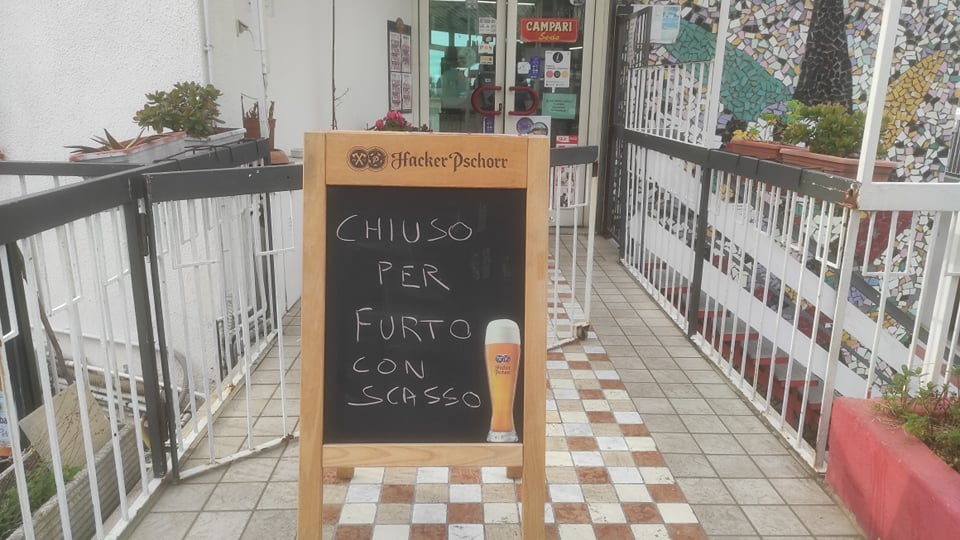 CAMPARI
Soda
Hacker Pschorr
CHIUSO
PER
FURTO
CON
SCASSO
Hacker
Pschorr